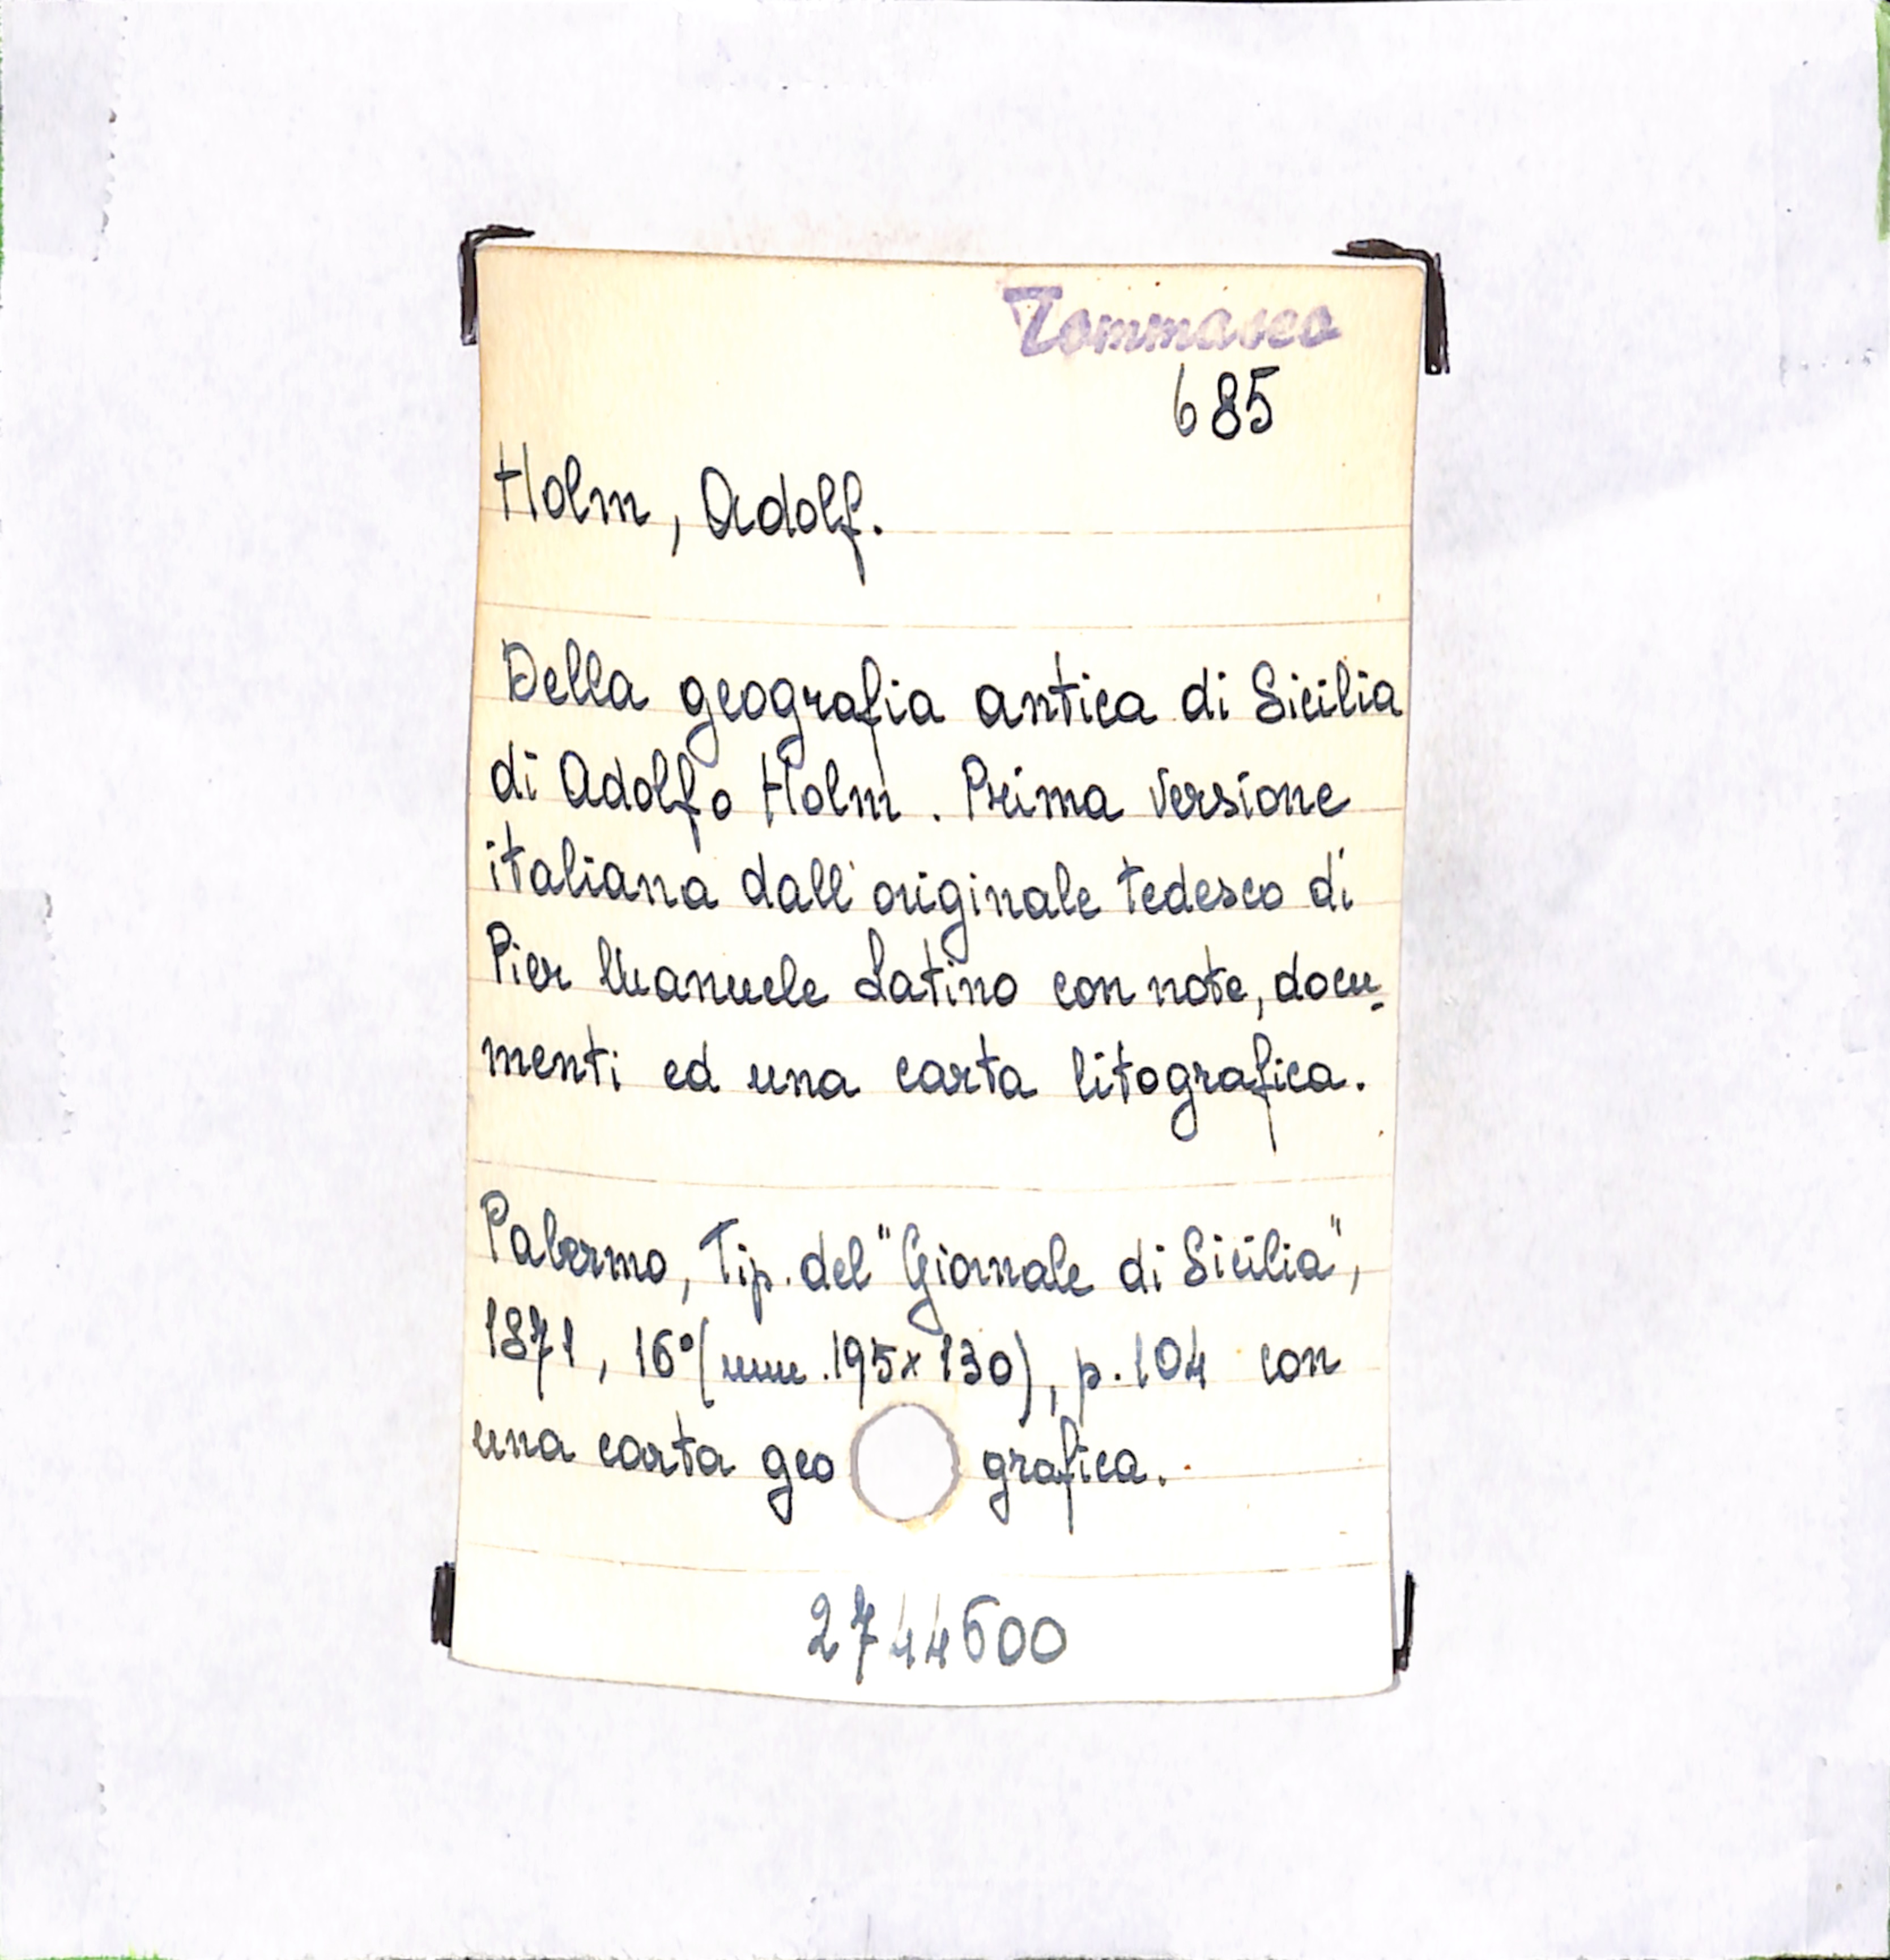 Tommaseo
685
Holm, Adolf.
Della geografia antica di Sicilia
di Adolfo Holm. Prima versione
italiana dall'originale tedesco di
Pier Manuele Latino con note, docu-
menti ed una carta litografica.
Palermo, Tip. del "Giornale di Sicilia",
1871, 16°(mm.195x130), p.104 con
una carta geo grafica.
2744600